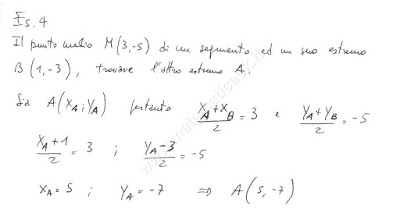 Es. 4
Il punto medio M(3,-5) di un segmento ed un suo estremo
B(1,-3), trovare l'altro estremo A.
Sia A(x_A; y_A) pertanto (x_A + x_B)/2 = 3 e (y_A + y_B)/2 = -5
(x_A + 1)/2 = 3 ; (y_A - 3)/2 = -5
x_A = 5 ; y_A = -7 ⇒ A(5,-7)